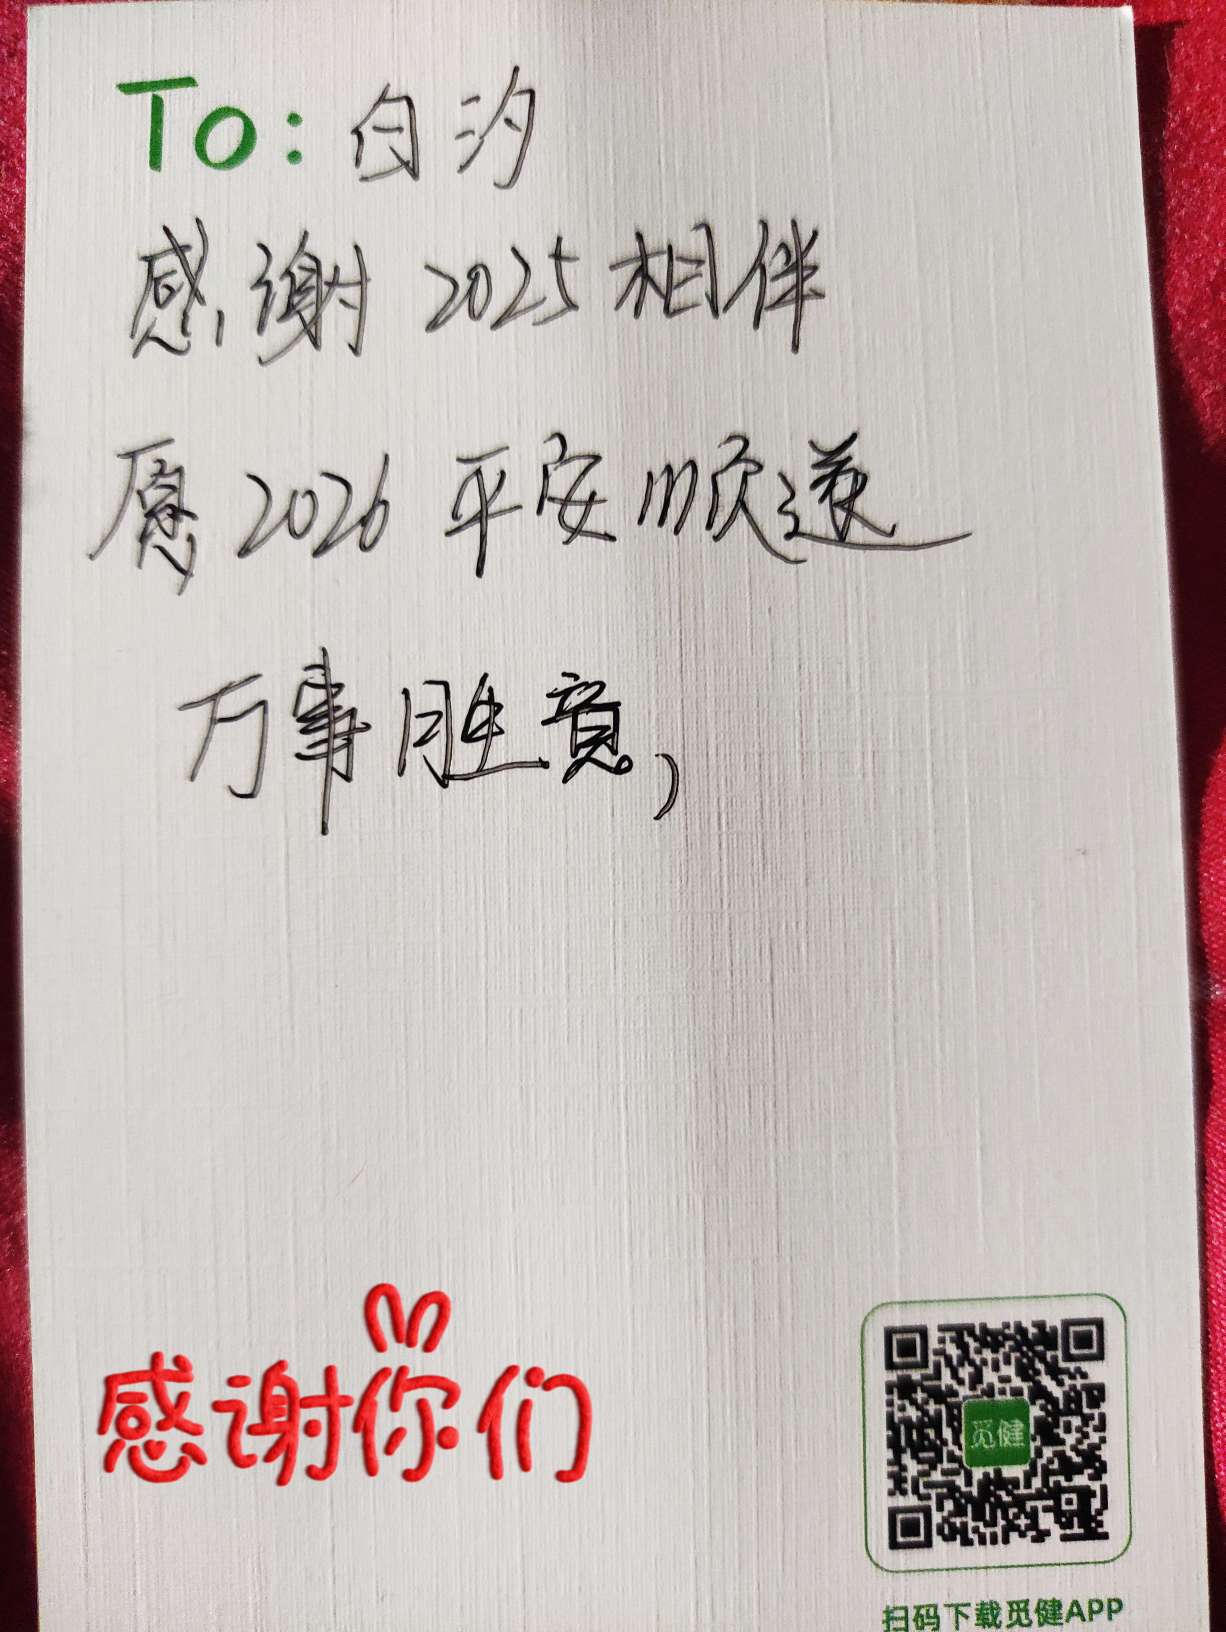 To: 白汐
感谢2025相伴
愿2026平安顺遂
万事胜意,
感谢你们
觅健
扫码下载觅健APP